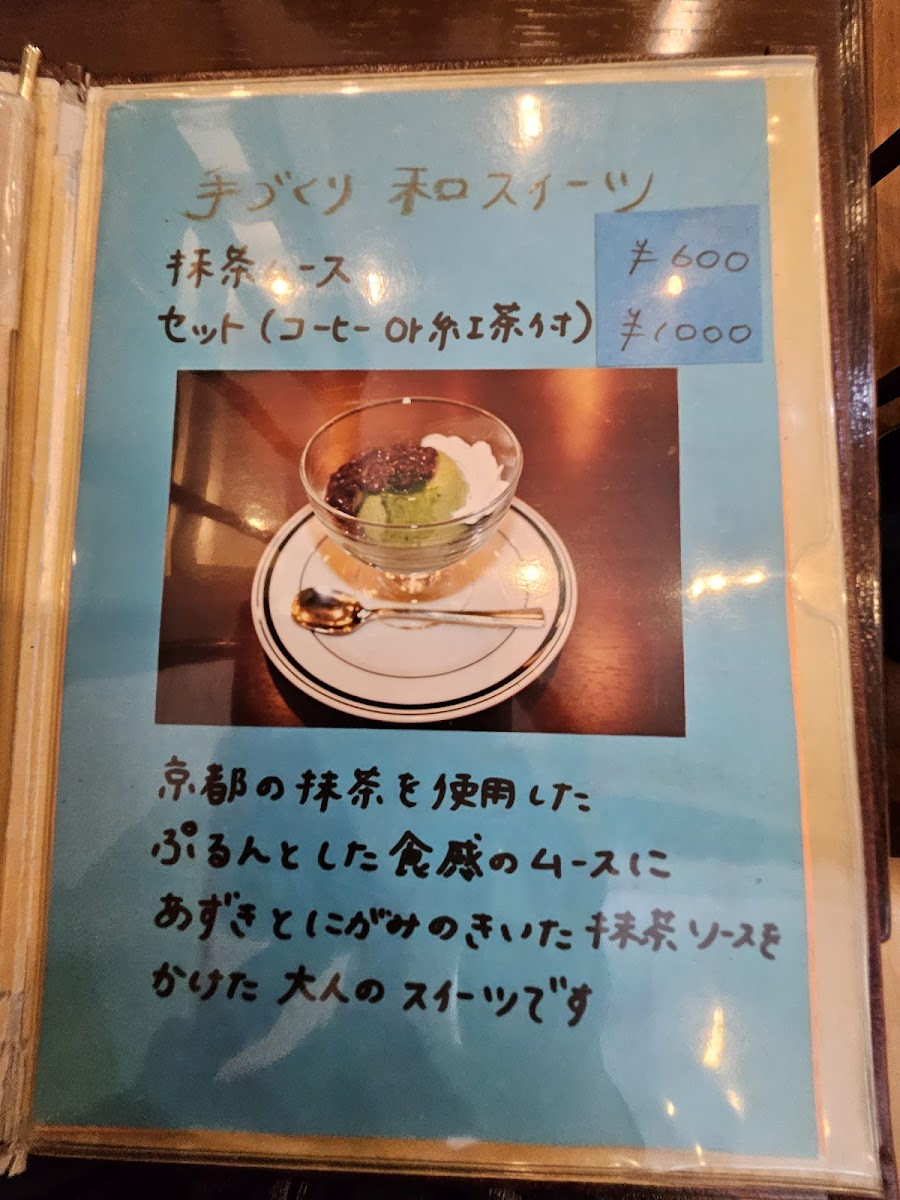 手づくり 和スイーツ
抹茶ムース ¥600
セット(コーヒーor紅茶付) ¥1000
京都の抹茶を使用した
ぷるんとした食感のムースに
あずきとにがみのきいた抹茶ソースを
かけた 大人のスイーツです